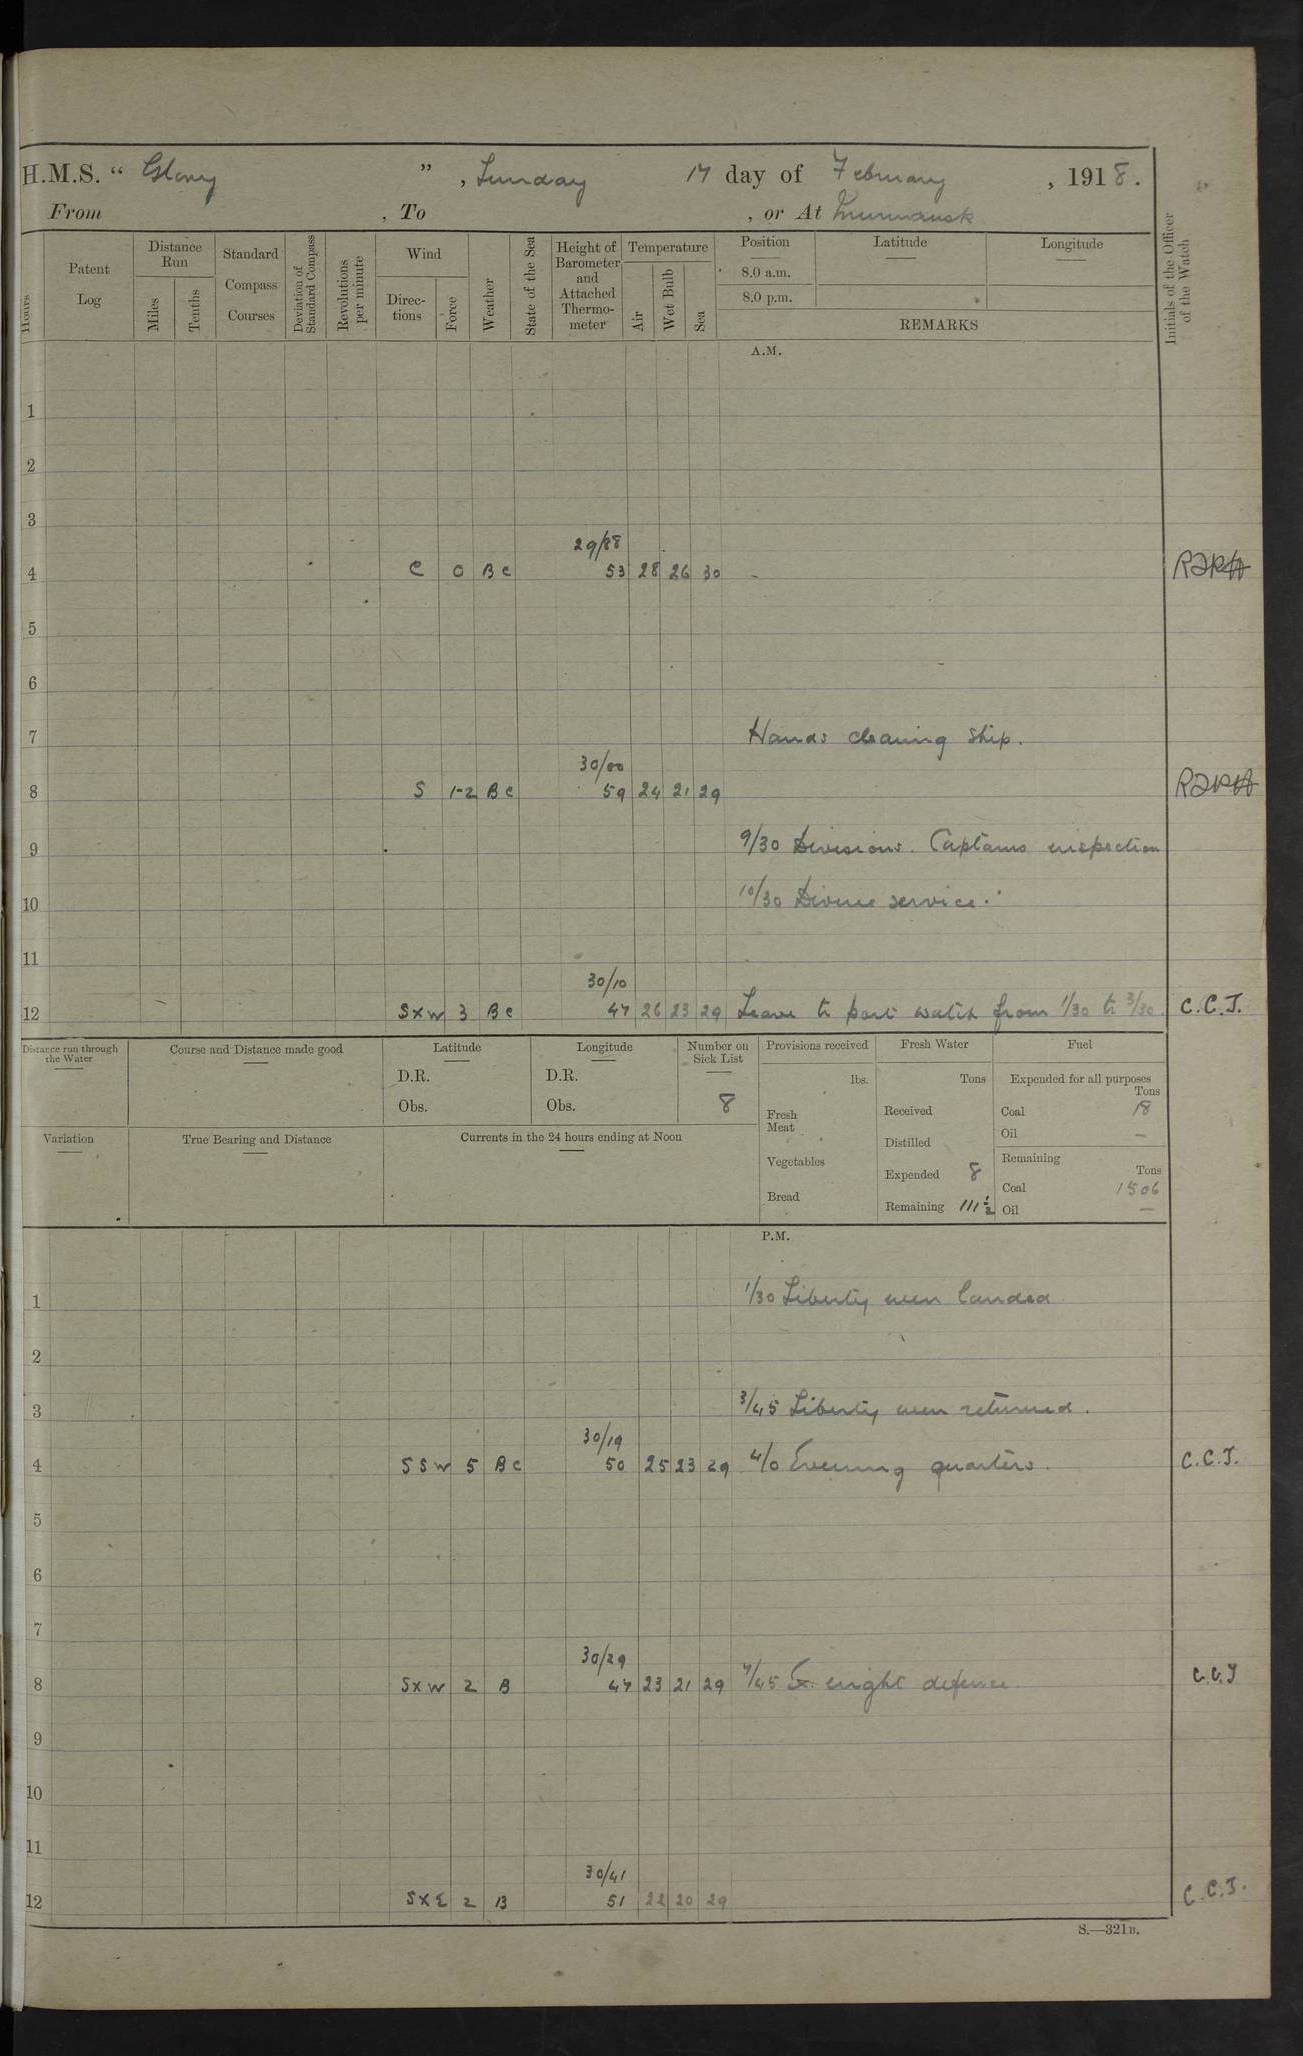 H.M.S. " Glory " , Sunday 17 day of February , 1918.
From , To , or At Murmansk
Hours
Patent Log
Distance Run
Miles
Tenths
Standard Compass Courses
Deviation of Standard Compass
Revolutions per minute
Wind
Direc-tions
Force
Weather
State of the Sea
Height of Barometer and Attached Thermo-meter
Temperature
Air
Wet Bulb
Sea
Position Latitude Longitude
8.0 a.m.
8.0 p.m.
REMARKS
Initials of the Officer of the Watch
A.M.
1
2
3
29/88
4 C 0 B C 53 28 26 30 -
5
6
7 Hands cleaning ship.
30/00
8 S 1-2 B C 59 24 21 29
9 9/30 Divisions. Captains inspection
10 10/30 Divine service.
11
30/10
12 S x W 3 B C 47 26 23 29 Leave to part watch from 1/30 to 3/30. C.C.J.
Distance run through the Water
Course and Distance made good
Latitude
D.R.
Obs.
Longitude
D.R.
Obs.
Number on Sick List
8
Variation
True Bearing and Distance
Currents in the 24 hours ending at Noon
Provisions received
lbs.
Fresh Meat
Vegetables
Bread
Fresh Water
Tons
Received
Distilled
Expended 8
Remaining 111 1/2
Fuel
Expended for all purposes
Tons
Coal 18
Oil —
Remaining
Tons
Coal 1506
Oil —
P.M.
1 1/30 Liberty men landed
2
3 3/45 Liberty men returned.
30/19
4 S S W 5 B C 50 25 23 29 4/0 Evening quarters. C.C.J.
5
6
7
30/29
8 S x W 2 B 47 23 21 29 7/45 Ex. night defence C.C.J
9
10
11
30/41
12 S x E 2 B 51 22 20 29 C.C.J.
S.—321B.